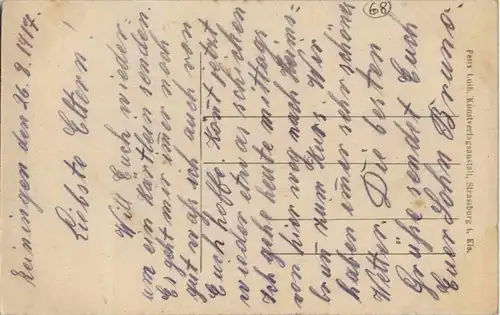 Reiningen den 26.8.1917.
Liebste Eltern!
Will Euch wieder
um ein Kärtlein senden.
Es geht mir immer noch
gut was ich auch von
Euch hoffe. Könt jetzt
wieder etwas schicken
Ich gehe heute mittags
von hier weg nach Heims-
brun zum Kurs. Wir
haben immer sehr schönes
Wetter. Die besten
Grüße sendet Euch
Euer Sohn Bruno
68
Petri Luib, Kunstverlagsanstalt, Strassburg i. Els.